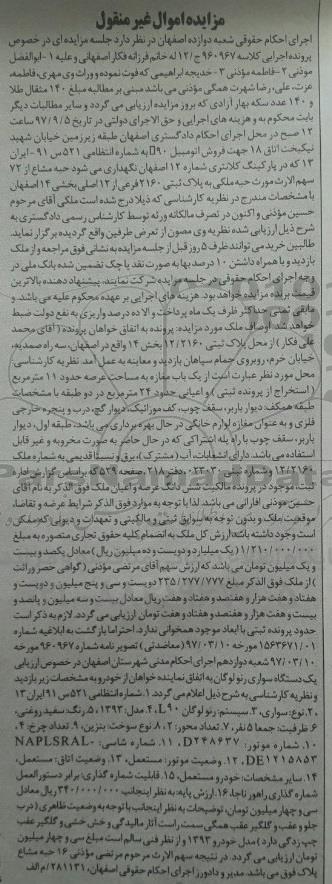 مزایده اموال غیر منقول
اجرای احکام حقوقی شعبه دوازده اصفهان در نظر دارد جلسه مزایده ای در خصوص
پرونده اجرایی کلاسه ۹۶۰۹۶۷ ج/۱۲ له خانم فرزانه فکار اصفهانی و علیه ۱-ابوالفضل
موذنی ۲-فاطمه مؤذنی ۳- خدیجه ابراهیمی که فوت نموده و وراث وی مهری، فاطمه،
عزت، علی، رضا شهرت همگی مؤذنی می باشد مبنی بر مطالبه مبلغ ۱۴۰ مثقال طلا
و ۱۴۰ عدد سکه بهار آزادی که بروز مزایده ارزیابی می گردد و سایر مطالبات دیگر
بابت محکوم به و هزینه های اجرایی و حق الاجرای دولتی در تاریخ ۹۷/۹/۵ ساعت
۱۲ صبح در محل اجرای احکام دادگستری اصفهان طبقه زیرزمین خیابان شهید
نیکبخت اتاق ۱۸ جهت فروش اتومبیل ۹۰ به شماره انتظامی ۵۲۱ س ۹۱- ایران
۱۳ که در پارکینگ کلانتری شماره ۱۲ اصفهان نگهداری می شود حبه مشاع از ۷۲
سهم الارث مورث حبه ملکی به پلاک ثبتی ۲۱۶۰ فرعی از ۱۲ اصلی بخش ۱۴ اصفهان
با مشخصات مندرج در نظریه کارشناسی که ذیلا درج شده است ملکی آقای مرحوم
حسین مؤذنی و اکنون در تصرف مالکانه ورثه توسط کارشناس رسمی دادگستری به
شرح ذیل ارزیابی شده نظریه وی مصون از تعرض طرفین واقع گردیده برگزار نماید.
طالبین خرید می توانند ظرف ۵ روز قبل از جلسه مزایده به نشانی فوق مراجعه و از ملک
بازدید و با همراه داشتن ۱۰ درصد بها به صورت نقد یا چک تضمین شده بانک ملی در
وجه اجرای احکام حقوقی در جلسه مزایده شرکت نمایند. پیشنهاد دهنده بالاترین
قیمت برنده مزایده خواهد بود. هزینه های اجرایی بر عهده محکوم علیه می باشد و
مابقی ثمن حداکثر ظرف یک ماه پرداخت و الا ده درصد واریزی به نفع دولت ضبط
خواهد شد. اوصاف ملک مورد مزایده: پرونده به اتفاق خواهان پرونده ( آقای محمد
علی فکار ) از محل پلاک ثبتی ۱۲/۲۱۶۰ بخش ۱۴ واقع در اصفهان، سه راه صمدیه،
خیابان خرم، روبروی حمام سپاهان بازدید و معاینه به عمل آمد. نظریه کارشناسی:
محل مورد نظر عبارت است از یک باب مغازه به مساحت عرصه حدود ۱۱ مترمربع
( استخراج از پرونده ثبتی ) و اعیانی حدود ۲۴ مترمربع در دو طبقه با مشخصات
طبقه همکف: دیوار باربر، سقف چوب، کف موزائیک، دیوار گچ، درب و پنجره خارجی
فلزی و به عنوان مغازه لوازم خانگی در حال بهره برداری می باشد. طبقه اول، دیوار
باربر، سقف چوب با راه پله اشتراکی که در حال حاضر به صورت مخروبه و غیر قابل
استفاده می باشد. دارای انشعابات، آب ( مشترک )، برق و نسبتا قدیمی به شماره ملک
۱۲/۲۱۶۰ و شماره ثبتی ۰۲۲۰۳۰ دفتر ۲۱۸، صفحه ۵۲۹ که براساس گزارش اداره
ثبت، موجود در پرونده مالکیت شش دانگ عرصه و اعیان ملک فوق الذکر به نام آقای
حسین موذنی افارانی می باشد. لذا با توجه به موارد فوق الذکر شرایط عرضه و تقاضا،
موقعیت ملک و بدون توجه به سوابق ثبتی و مالکیتی و تعهدات و دیونی که ممکن
است وجود داشته باشد ارزش کل ملک به انضمام کلیه حقوق تجاری متصوره به مبلغ
۱/۲۱۰/۰۰۰/۰۰۰ ( یک میلیارد و دویست و ده میلیون ریال ) معادل یکصد و بیست
و یک میلیون تومان می باشد که ارزش سهم آقای مرتضی مؤذنی ( گواهی حصر وراثت
) از ملک فوق الذکر مبلغ ۲۳۵/۲۷۷/۷۷۷ دویست و سی و پنج میلیون و دویست و
هفتاد و هفت هزار و هفتصد و هفتاد و هفت ریال معادل بیست و سه میلیون و پانصد و
بیست و هفت هزار و هفتصد و هفتاد و هفت تومان ارزیابی می گردد. لازم به ذکر است
حدود پرونده ثبتی با ابعاد موجود همخوانی ندارد. احتراما بازگشت به ابلاغیه شماره
1563671/01 مورخه ۹۷/۰۳/۱۰ ( معاضدتی ) تصویر نامه شماره ۹۶۰۹۶۷ مورخه
۹۷/۰۳/۱۰ شعبه دوازدهم اجرای احکام مدنی شهرستان اصفهان در خصوص ارزیابی
یک دستگاه سواری رنو لوگان به اتفاق نماینده خواهان از خودرو به مشخصات زیر بازدید
و نظریه کارشناسی به شرح ذیل اعلام می گردد. ۱. شماره انتظامی ۵۲۱ س ۹۱ ایران ۱۳
، ۲. نوع: سواری، ۳. سیستم: رنو لوگان L۹۰، ۴. مدل: ۱۳۹۳، ۵. رنگ: سفید روغنی،
۶. ظرفیت: جمعا ۵ نفر، ۷. تعداد محور: ۲، ۸. نوع سوخت: بنزین، ۹. تعداد چرخ: ۴،
۱۰. شماره موتور: D۲۴۸۶۳۷، ۱۱. شماره شاسی: NAPLSRAL-
DE۱۲۱۵۸۵۳، ۱۲. وضعیت موتور: مستعمل، ۱۳. وضعیت اتاق: مستعمل،
۱۴. سایر مشخصات: خودرو مستعمل، ۱۵. قابلیت شماره گذاری: برابر دستورالعمل
شماره گذاری راهور ناجا، ۱۶. ارزش پایه: به نظر اینجانب ۳۴۰/۰۰۰/۰۰۰ ریال معادل
سی و چهار میلیون تومان، توضیحات به نظر اینجانب با توجه به وضعیت ظاهری ( درب
جلو و عقب و گلگیر عقب همگی سمت راست آثار مالیدگی و خش خشی و گلگیر عقب
چپ زدگی دارد ) مدل خودرو ۱۳۹۳ و از نظر فنی سالم است مبلغ سی و چهار میلیون
تومان ارزیابی می گردد. در نتیجه سهم الارث مرحوم مرتضی مؤذنی ۱۶ حبه مشاع
پلاک فوق می باشد. مدیر و دادورز اجرای احکام حقوقی اصفهان، ۲۸۱۱۳۱/م الف